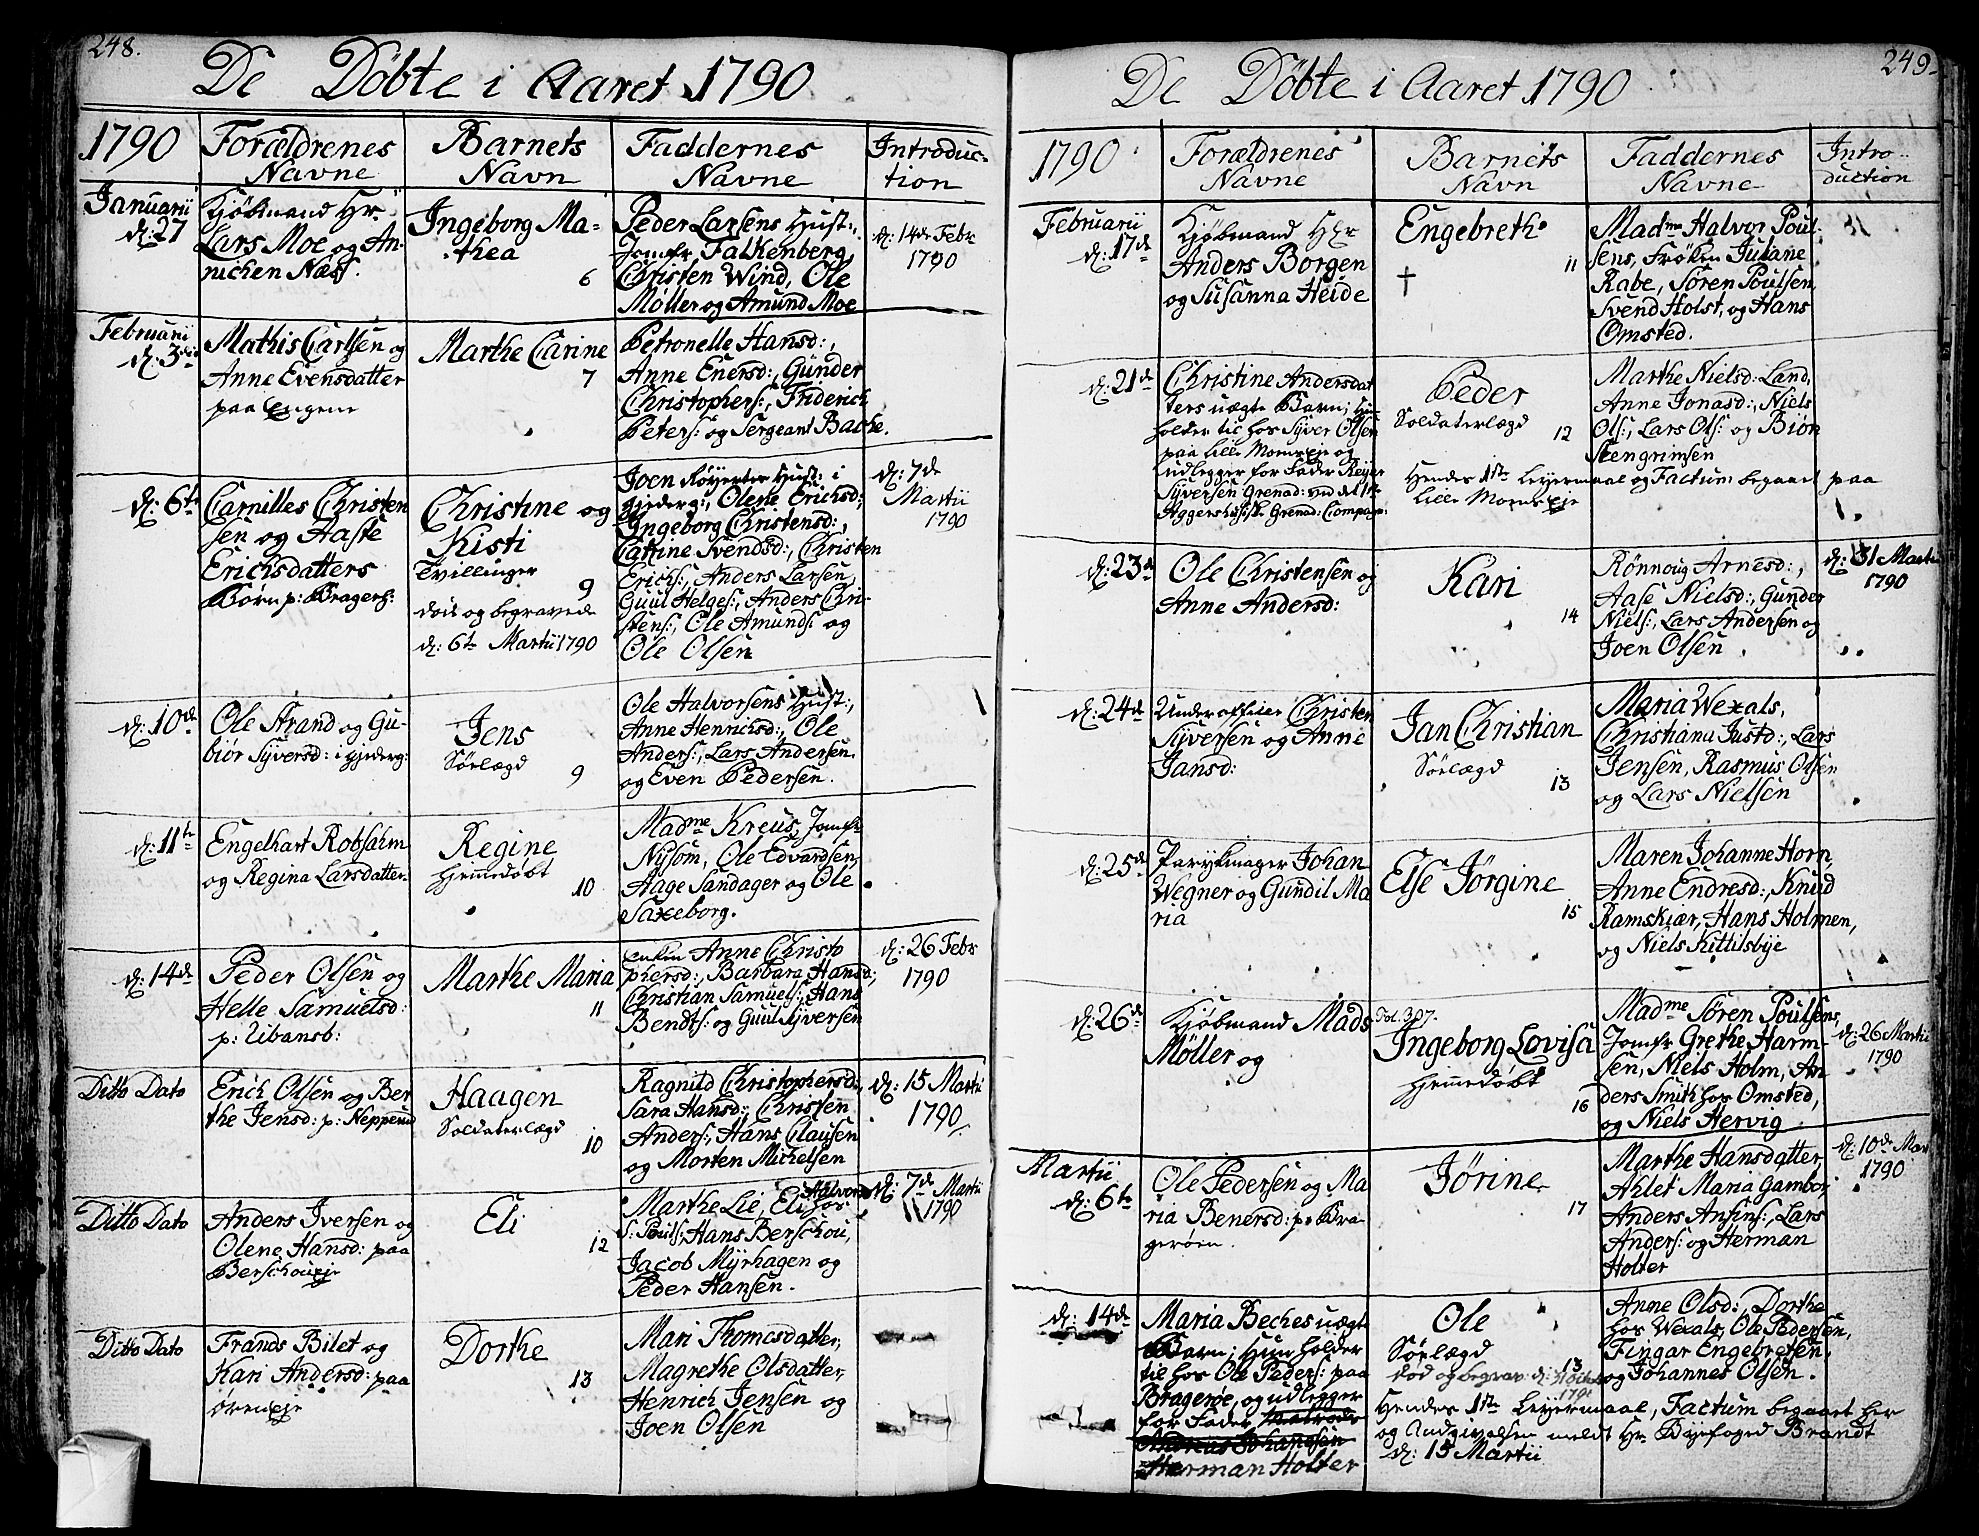 248.
De Döbte i Aaret 1790
1790
Forældrenes
Navne
Barnets
Navn
Faddernes
Navne
Introduc-
tion
Januarii
d: 27
Kjöbmand Hr.
Lars Moe og An-
nichen Næss.
Ingeborg Ma-
thea
6
Peder Larsens Hust:,
Jomfr Falkenberg,
Christen Wind, Ole
Møller og Amund Moe
d: 14de Febr
1790
Februarii
d: 3die
Mathis Carlsen og
Anne Evensdatter
paa Engene
Marthe Carine
7
Petronelle Hansd:,
Anne Enersd:, Gunder
Christophers:, Friderich
Peters: og Sergeant Bache.
d: 6te
Camilles Christen
sen og Aaste
Erichsdatters
Börn p: Bragers:
Christine og
Kisti
Tvillinger
9
död og begravede
d: 6te Martii 1790
Joen Röyerter Hust: i
gjederg:, Olene Erichsd:,
Ingeborg Christensd:,
Cattine Svendsd:, Christen
Erichs:, Anders Larsen,
Guul Helges:, Anders Chri-
stens:, Ole Amunds: og
Ole Olsen
d: 7de
Martii
1790
d: 10de
Ole Strand og Gu-
biör Syversd: i gjederg:
Jens
Söelægd
9
Ole Halvorsens Hust:,
Anne Henrichsd:, Ole
Anders:, Lars Andersen
og Even Pedersen.
d: 11te
Engelhart Robsahm
og Regina Larsdatter
Regine
hjemedöbt
10
Madme Kreus, Jomfr
Nysom, Ole Edvardsen,
Aage Sandager og Ole
Saxeborg.
d: 14de
Peder Olsen og
Helle Samuelsd:
p: Ubansb:
Marthe Maria
11
enken Anne Christo
phersd:, Barbara Hansd:,
Christian Samuels:, Hans
Bendts: og Guul Syversen
d: 26 Febr
1790
Ditto Dato
Erich Olsen og Ber
the Jensd: p: Neppeud
Haagen
Soldaterlægd
10
Ragnild Christophersd:,
Sara Hansd:, Christen
Anders:, Hans Clausen
og Morten Michelsen
d: 15 Martii
1790
Ditto Dato
Anders Iversen og
Olene Hansd: paa
Berschoueje
Eli
12
Marthe Lie, Eli hos Halvord
S: Pouls:, Hans Berschou,
Jacob Myrhagen og
Peder Hansen.
d: 7de Martii
1790
Ditto Dato
Frands Bilet og
Kari Andersd: paa
öreneje
Dorthe
13
Mari Thomesdatter,
Magrethe Olsdatter,
Henrich Jensen og
Joen Olsen
249.
De Döbte i Aaret 1790
1790
Forældrenes
Navne
Barnets
Navn
Faddernes
Navne
Intro-
duction
Februarii
d: 17de
Kjöbmand Hr
Anders Borgen
og Susanna Heide
Engebreth
†
11
Madme Halvor Poul-
sens, Fröken Juliane
Rabe, Sören Poulsen,
Svend Holst, og Hans
Omsted.
d: 21de
Christine Andersdat
ters uægte Barn; Hun
holder til hos Syver Olsen
paa Lille Momseje og
udlegger for Fader Reyer
Syversen Grenad: ved det 1te
Aggershusiske Grenad: Compagn:
Peder
Soldaterlægd
12
Marthe Nielsd: Land,
Anne Jonasd:, Niels
Ols:, Lars Ols: og Biön
Stengrimsen
Hendes 1ste Leyermaal og Factum begaaet paa
Lille Momseje
d: 23de
Ole Christensen og
Anne Andersd:
Kari
14
Rönnoug Arnesd:,
Aase Nielsd:, Gunder
Niels:, Lars Andersen og
Joen Olsen
d: 31 Martii
1790
d: 24de
Underofficier Christen
Syversen og Anne
Jansd:
Jan Christian
Söelægd
13
Maria Wexals,
Christiana Justd:, Lars
Jensen, Rasmus Olsen
og Lars Nielsen
d: 25de
Parykmager Johan
Wegner og Gundil Ma
ria
Else Jörgine
15
Maren Johanne Horn,
Anne Endresd:, Knud
Ramskiær, Hans Holmen,
og Niels Kittilsbye
d: 26de
Kjöbmand Mads
Møller og
Fol. 307.
Ingeborg Lovisa
hjemedöbt
16
Madme Sören Poulsens,
Jomfr Grethe Harm-
sen, Niels Holm, An
ders Smith hos Omsted,
og Niels Hervig
d: 26 Martii
1790
Martii
d: 6te
Ole Pedersen og Ma
ria Benersd: p: Bra
geröen.
Jörine
17
Marthe Hansdatter,
Ahlet Maria Gambor,
Anders Ansins:, Lars
Anders: og Herman
Holter
d: 10de Mar
1790
d: 14de
Maria Beches uægte
Barn; Hun holder
til hos Ole Peders: paa
Bragerøe, og udlegger
for Fader Matrode
Andreas Johannsen
Herman Holter
Ole
Söelægd
13
död og begrav: d:
Anne Olsd:, Dorthe
hos Wexals, Ole Pedersen,
Fingar Engebretsen,
og Johannes Olsen.
Hendes 1ste Leyermaal, Factum begaaet her
og Andgivelsen meldt Hr Byefoged Brandt
d: 15 Martii